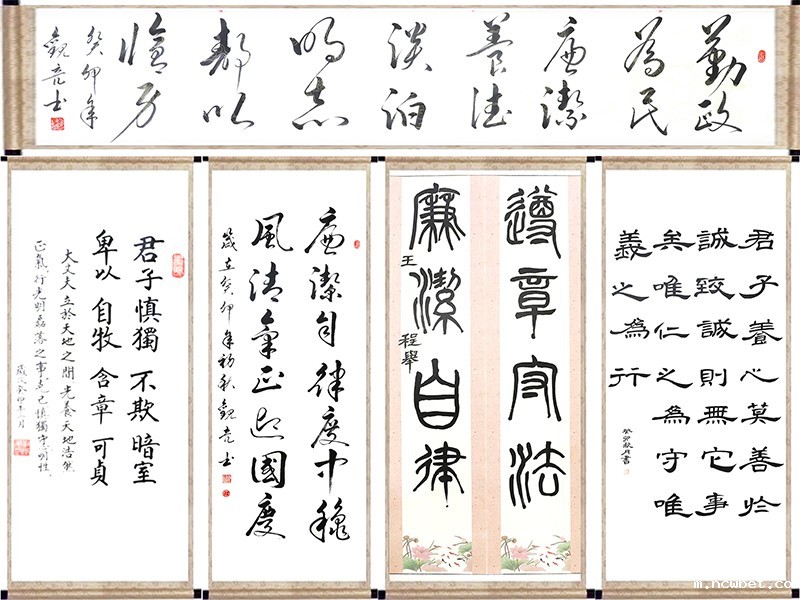 勤政
為民
廉潔
養德
淡泊
明志
靜以
脩身
癸卯年
觀亮书
君子養心莫善於
誠致誠則無它事
矣唯仁之為守唯
義之為行
癸卯秋月書
遵章守法
廉潔自律
王 程舉
廉潔自律度中穐
風清氣正迎國慶
歲在癸卯年初秋觀亮书
君子慎獨 不欺暗室
卑以自牧 含章可貞
大丈夫立於天地之間先養天地浩然
正氣行光明磊落之事 慎獨守 明性
歲次癸卯年 月
m.ncwbet.cc